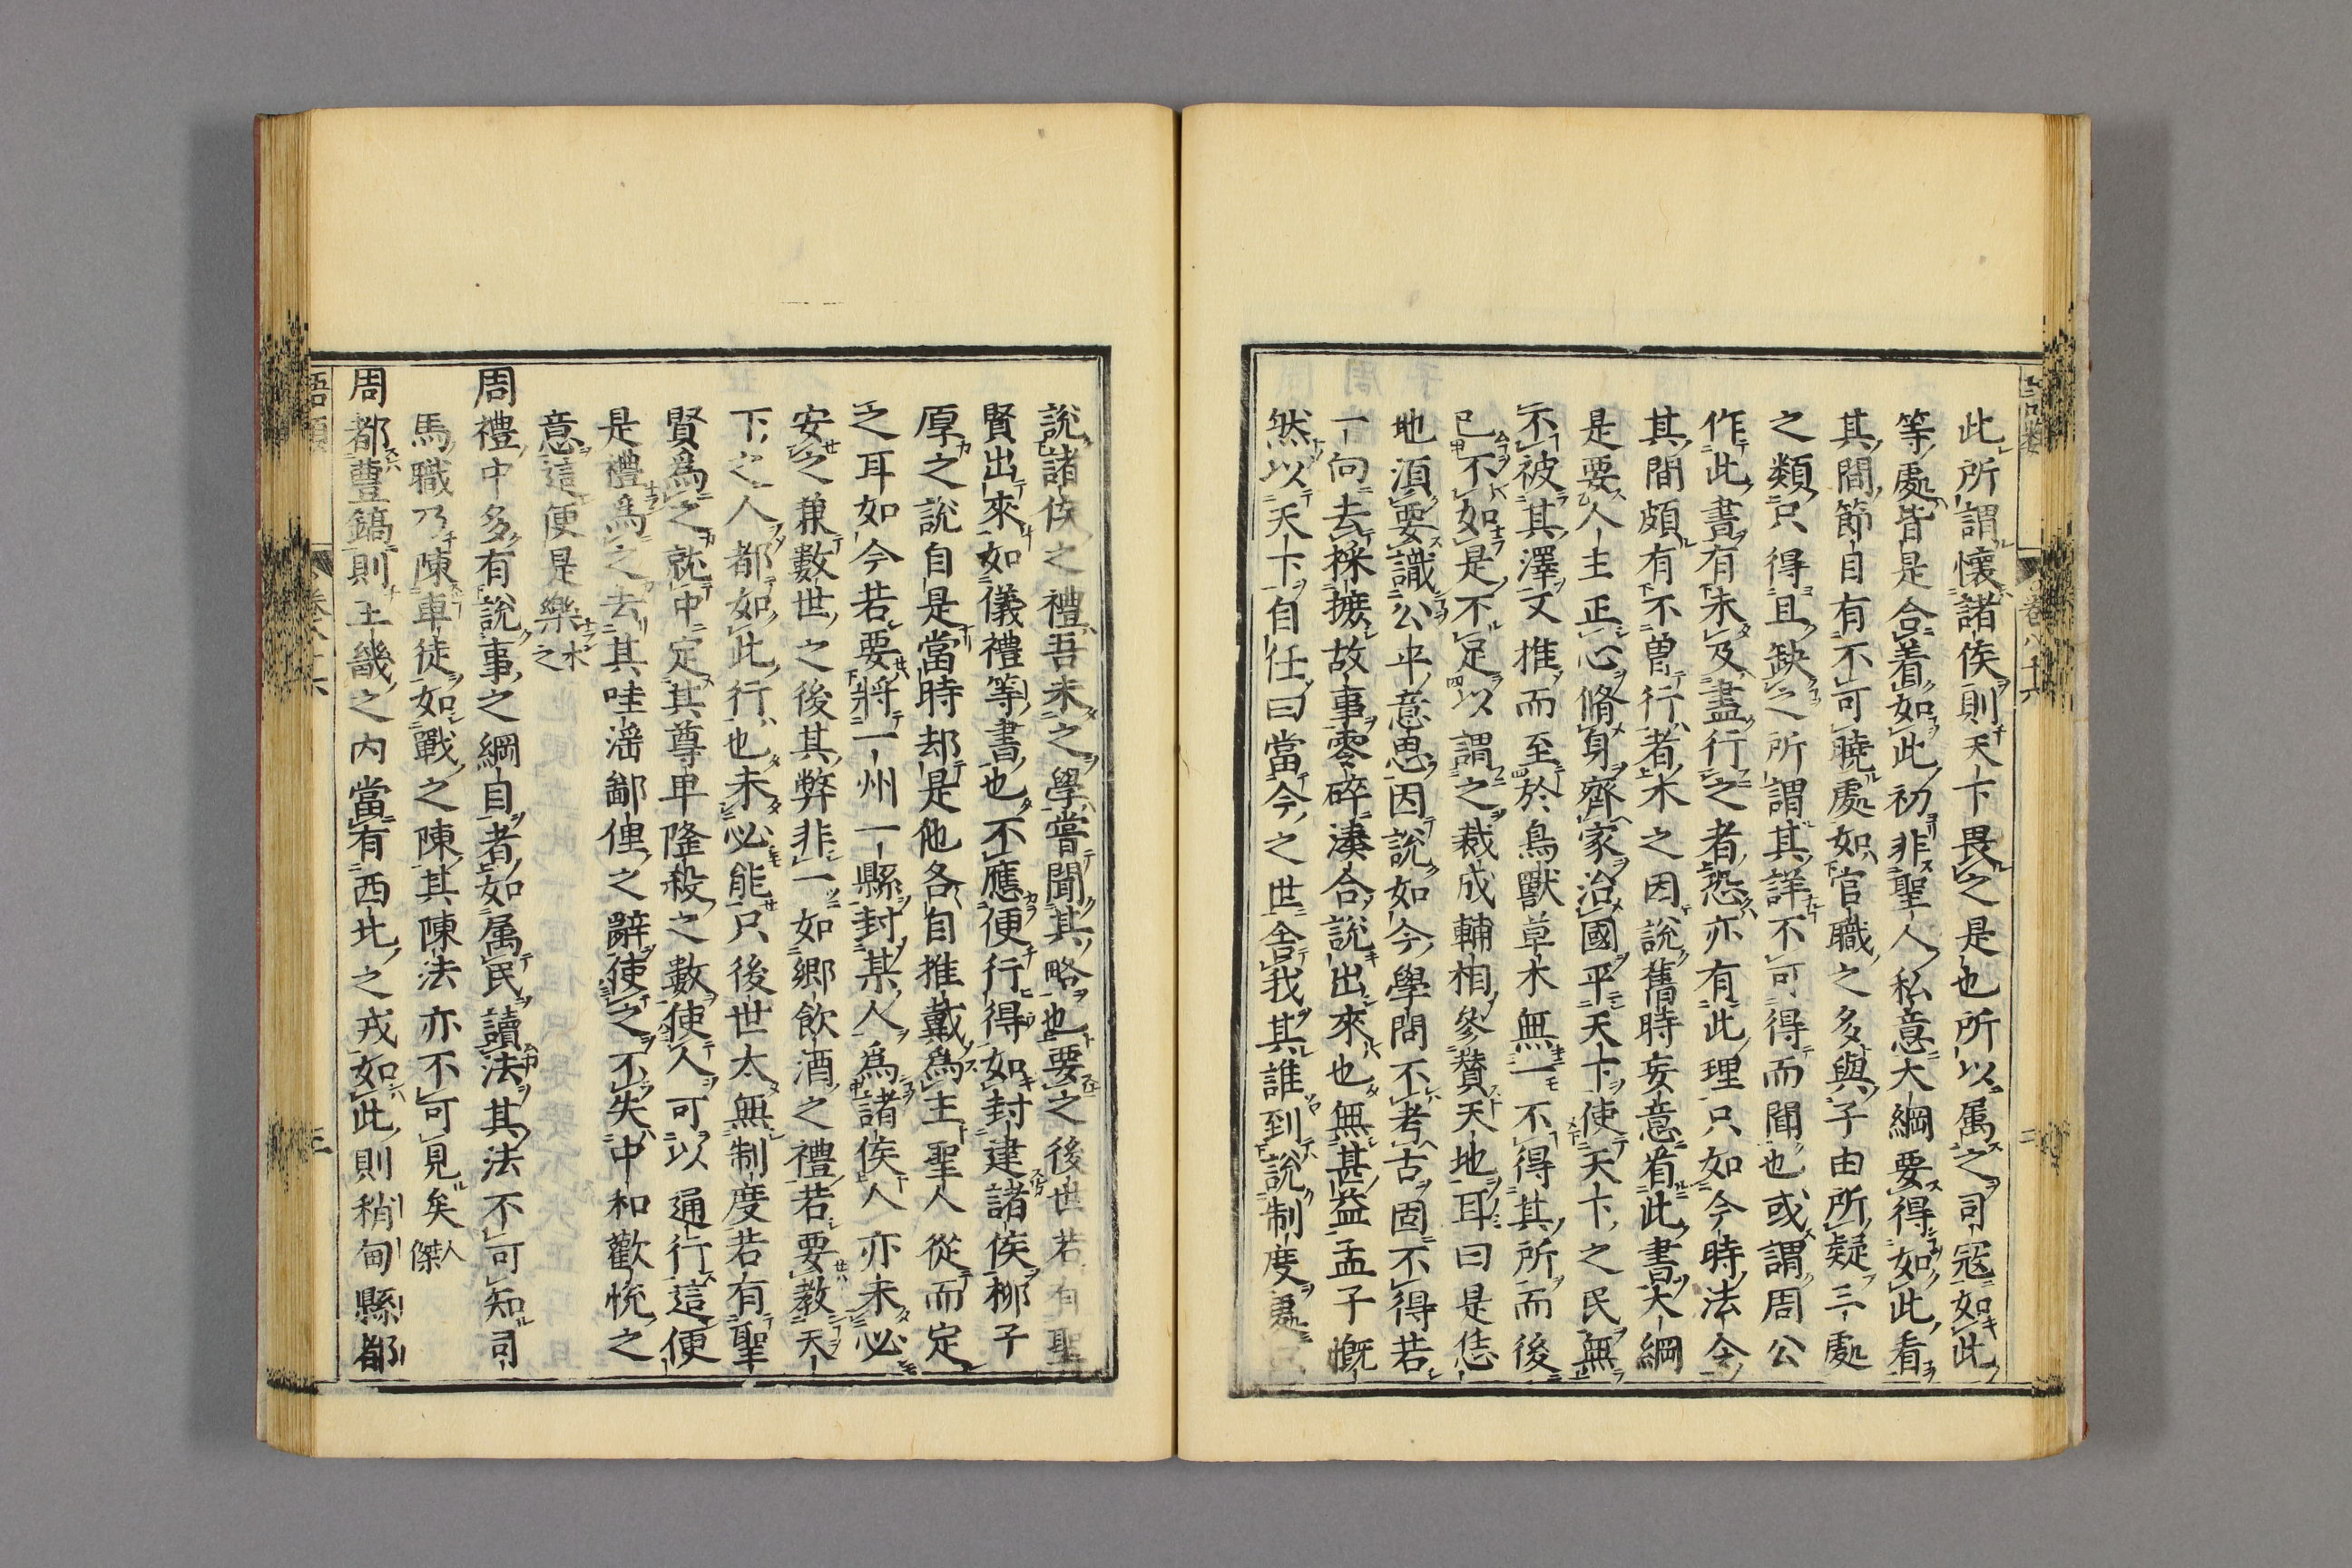 此所謂懷諸侯則天下畏之是也所以属之司寇如此
等處皆是合着如此初非聖人私意大綱要得如此看
其間節自有不可曉處如官職之多與子由所疑三處
之類只得且缺之所謂其詳不可得而聞也或謂周公
作此書有未及盡行之者恐亦有此理只如今時法令
其間頗有不曽行者木之因說舊時妄意看此書大綱
是要人主正心脩身齊家治國平天下使天下之民無
不被其澤又推而至於鳥獸草木無一不得其所而後
已不如是不足以謂之裁成輔相參賛天地耳曰是恁
地湏要識公平意思因說如今學問不考古固不得若
一向去採摭故事零碎湊合說出來也無甚益孟子慨
然以天下自任曰當今之世舍我其誰到說制度處
說諸侯之禮吾未之學嘗聞其略也要之後世若有聖
賢出來如儀禮等書也不應便行得如封建諸侯柳子
厚之說自是當時却是他各自推戴爲主聖人從而定
之耳如今若要將一州一縣封某人爲諸侯人亦未必
安之兼數世之後其弊非一如鄉飲酒之禮若要教天
下之人都如此行也未必能只後世太無制度若有聖
賢爲之就中定其尊卑隆殺之數使人可以通行這便
是禮爲之去其哇滛鄙俚之辭使之不失中和歡悅之
意這便是樂木之
周禮中多有說事之綱自者如属民讀法其法不可知司
馬職乃陳車徒如戰之陳其陳法亦不可見矣人傑
周都豐鎬則王畿之内當有西北之戎如此則稍甸縣都
語類 卷八十六 三
卷八十六 二